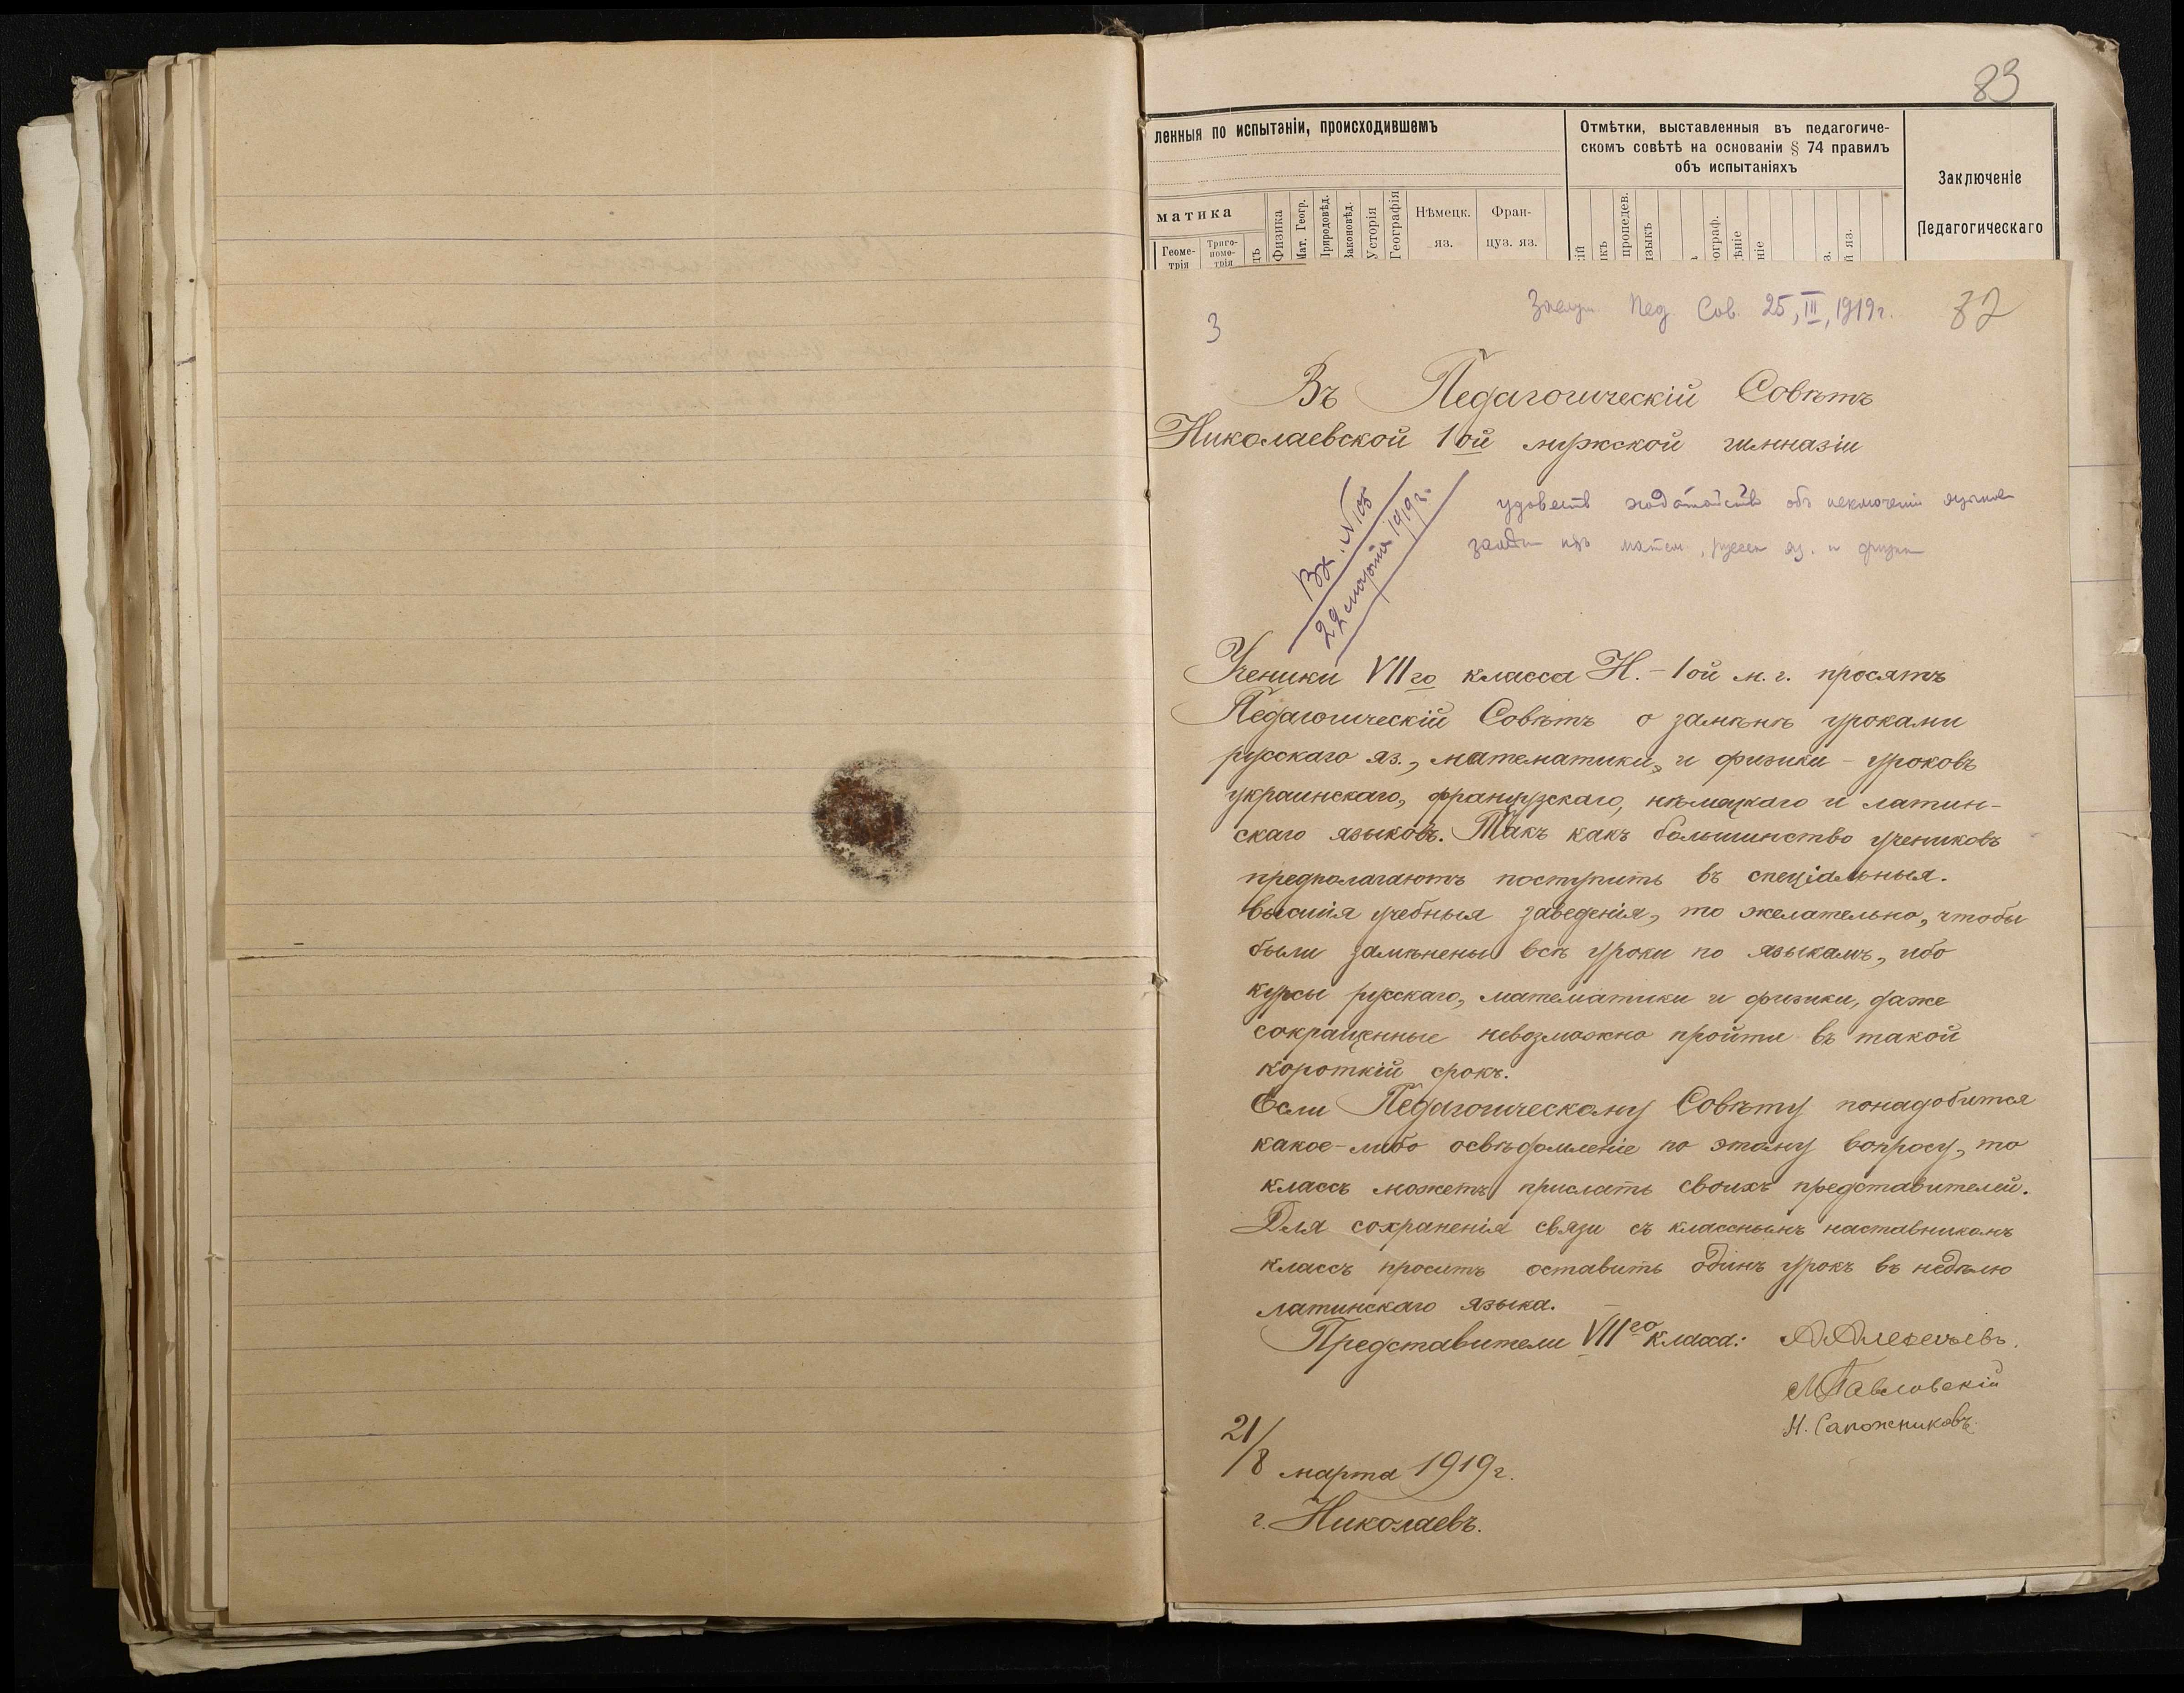 83
ленныя по испытаніи, происходившемъ
Отмѣтки, выставленныя въ педагогиче-
скомъ совѣтѣ на основаніи § 74 правилъ
объ испытаніяхъ
Заключеніе
Педагогическаго
матика
Геоме-
трія
Триго-
номе-
трія
Физика
Мат. Геогр.
Природовѣд.
Законовѣд.
Исторія
Географія
Нѣмецк.
яз.
Фран-
цуз. яз.
пропедев.
3
Пед. Сов. 25, III, 1919г.
82
Въ Педагогическій Совѣтъ
Николаевской 1ой мужской гимназіи
Вх. №
22 марта 1919 г.
объ
матем., русск яз. и физик
Ученики VIIго класса Н.-1ой м. г. просятъ
Педагогическій Совѣтъ о замѣнѣ уроками
русскаго яз., математики, и физики - уроковъ
украинскаго, французскаго, нѣмецкаго и латин-
скаго языковъ. Такъ какъ большинство учениковъ
предполагаютъ поступить въ спеціальныя.
высшія учебныя заведенія, то желательно, чтобы
были замѣнены всѣ уроки по языкамъ, ибо
курсы русскаго, математики и физики, даже
сокращенные невозможно пройти въ такой
короткій срокъ.
Если Педагогическому Совѣту понадобится
какое-либо освѣдомленіе по этому вопросу, то
классъ можетъ прислать своихъ представителей.
Для сохраненія связи съ класснымъ наставникомъ
классъ проситъ оставить одинъ урокъ въ недѣлю
латинскаго языка.
Представители VIIго класса: А Алексѣевъ.
М Павловскій
Н. Сапожниковъ.
21/8 марта 1919 г.
г. Николаевъ.